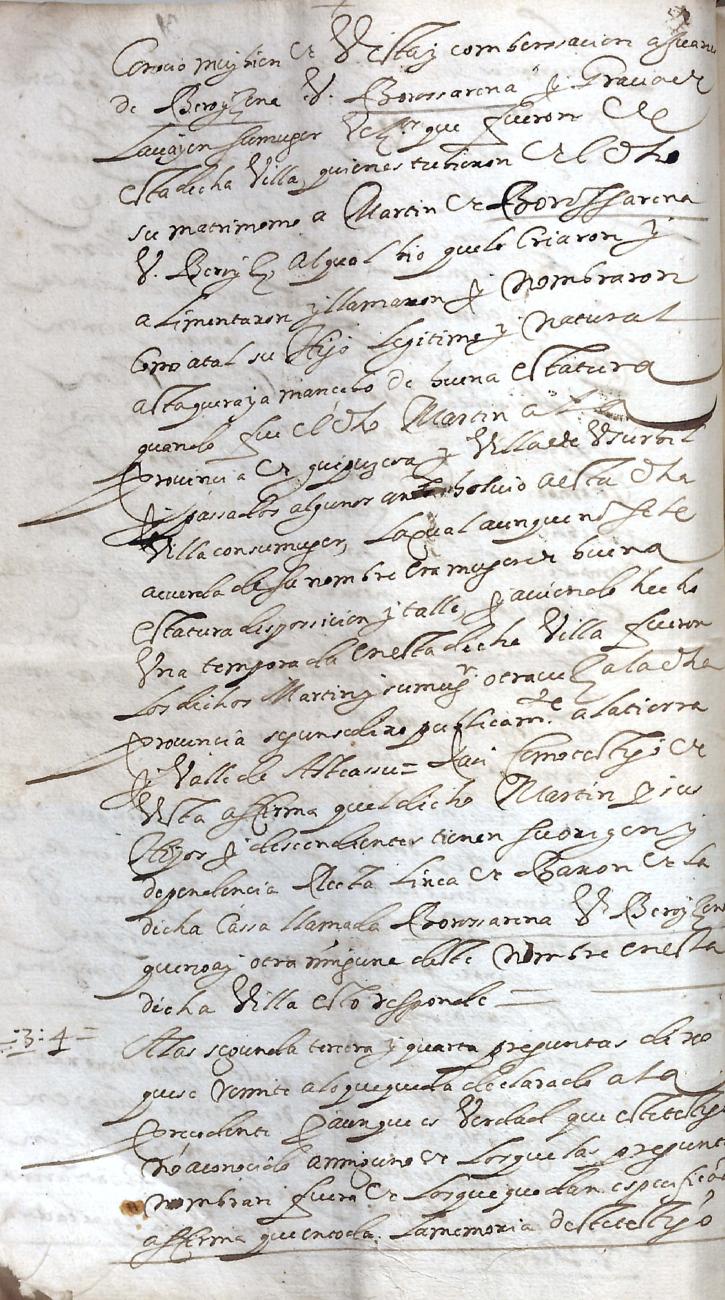 Conocio muy bien de Vista y comberssacion a Juanes
de Beroyz ena V. Borossarena y Gracia de
su muger Vezos que fueron de
esta dicha Villa, quienes tubieron de el dho
su matrimonio a Martin de Borossarena
V. Beroyz al qual bio que lo Criaron y
alimentaron y llamaron y nombraron
Como atal su Hijo legitimo y natural
asta que era ya mancebo de buena estatura
quando fue el dho Martin a la
Provincia de guipuzcoa y Villa de Usurbil
y passados algunos años bolvio aesta dha
Villa con su muger, la qual aunque no se le
acuerda de su nombre era muger de buena
estatura disposicion y talle, y aviendo hecho
Una temporada en esta dicha Villa fueron
los dichos Martin y su mugr otra vez a la dha
Provincia segun se dixo publicamte a la tierra
y Valle de Asteassu = y assi como testigo de
Vista affirma que el dicho Martin y sus
Hijos y descendientes tienen su origen y
dependencia Recta linea de Baron de la
dicha Cassa llamada Borossarena V. Beroyzena
que no ay otra ninguna deste Nombre en esta
dicha Villa esto responde =
:3:4= A las segunda tercera y quarta preguntas dixo
que se Remite a lo que queda declarado a la
Precedente y aunque es Verdad que este testigo
no a conocido a ninguno de los que las preguntas
nombran fuera de los que quedan especificados
affirma que en toda la memoria deste testigo